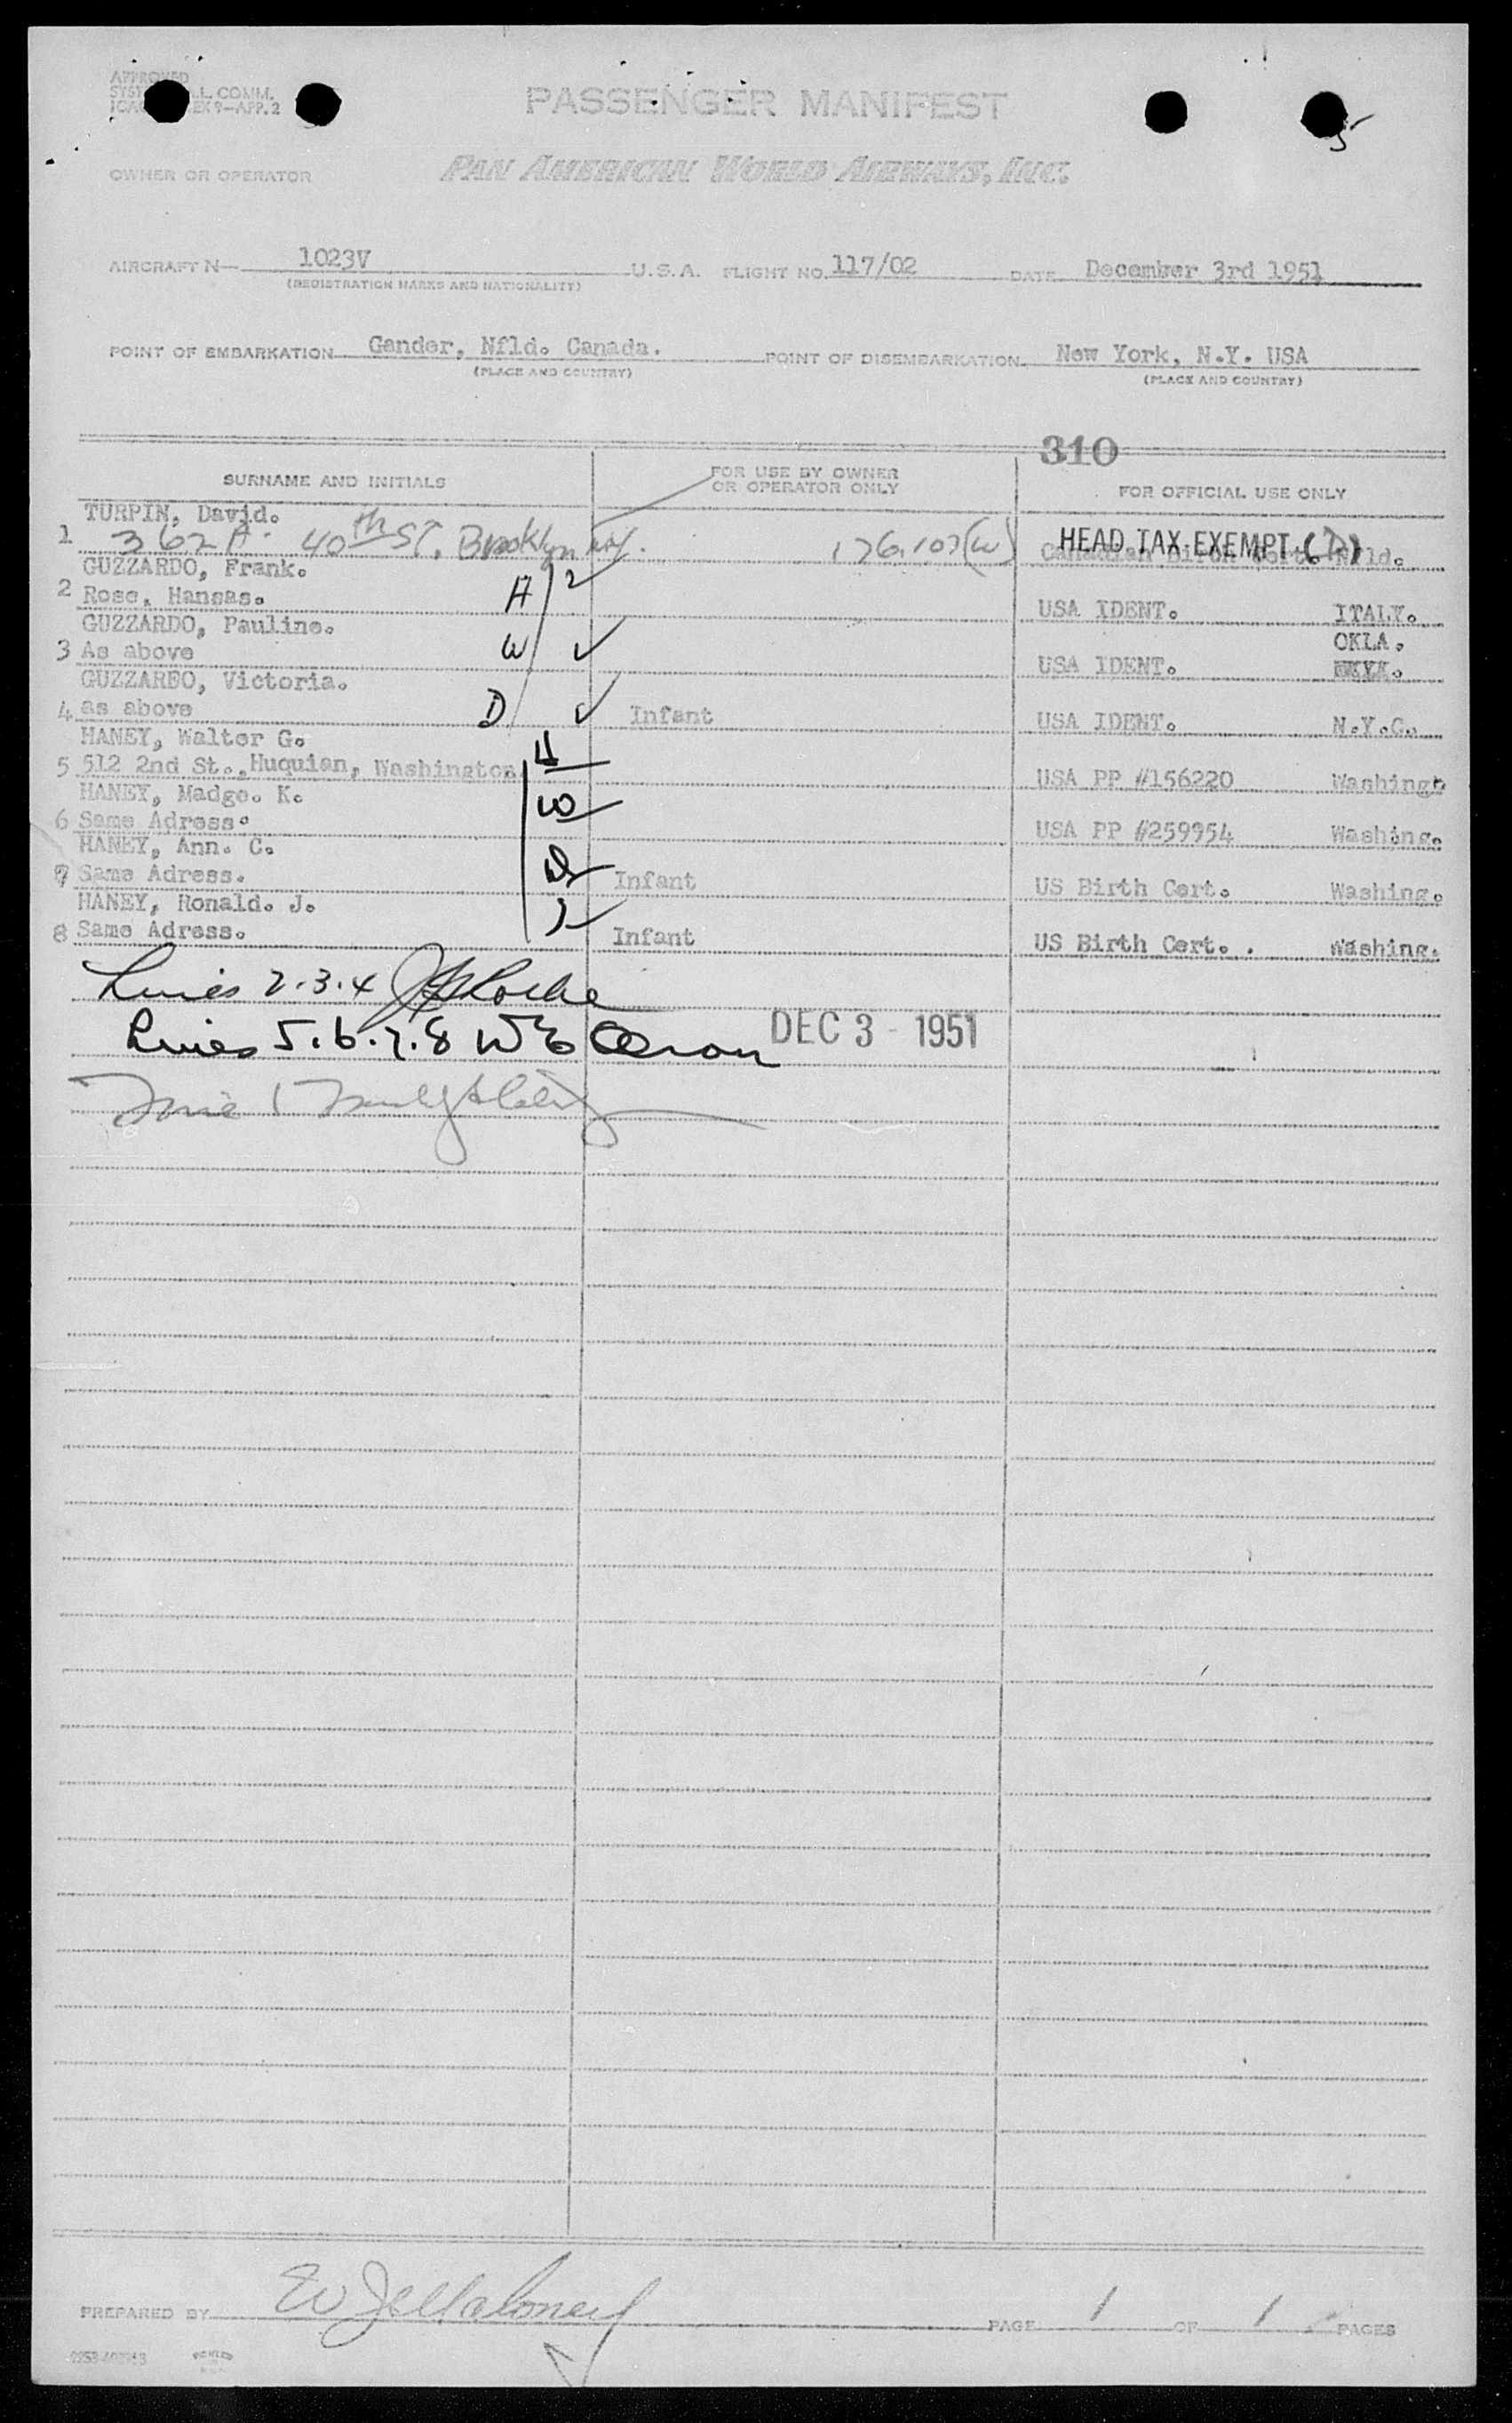 APPROVED
L. COMM.
9-APP. 2
PASSENGER MANIFEST
OWNER OR OPERATOR PAN AMERICAN WORLD AIRWAYS, INC.
AIRCRAFT N— 1023V U.S.A. FLIGHT NO. 117/02 DATE December 3rd 1951
(REGISTRATION MARKS AND NATIONALITY)
POINT OF EMBARKATION Gander, Nfld. Canada. POINT OF DISEMBARKATION New York, N.Y. USA
(PLACE AND COUNTRY) (PLACE AND COUNTRY)
310
SURNAME AND INITIALS FOR USE BY OWNER OR OPERATOR ONLY FOR OFFICIAL USE ONLY
TURPIN, David.
1 362 A. 40th ST. Brooklyn N.Y. 176.107(W) HEAD TAX EXEMPT (D) Canadian Birth Cert. Nfld.
GUZZARDO, Frank.
2 Rose, Hansas. H USA IDENT. ITALY.
GUZZARDO, Pauline. OKLA.
3 As above W ✓ USA IDENT.
GUZZARDO, Victoria.
4 as above D ✓ Infant USA IDENT. N.Y.C.
HANEY, Walter G.
5 512 2nd St., Huquian, Washington H USA PP #156220 Washing.
HANEY, Madge. K.
6 Same Adress. W USA PP #259954 Washing.
HANEY, Ann. C.
7 Same Adress. D Infant US Birth Cert. Washing.
HANEY, Ronald. J.
8 Same Adress. Infant US Birth Cert. . Washing.
Lines 2.3.4 Roche
Lines 5.6.7.8
DEC 3 - 1951
Line 1
PREPARED BY EW J Maloney PAGE 1 OF 1 PAGES